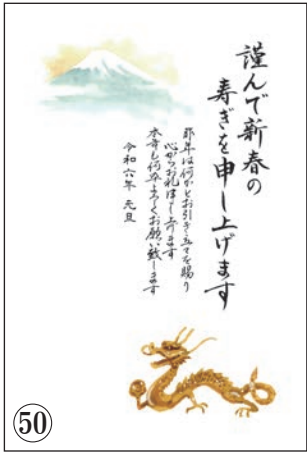 謹んで新春の
寿ぎを申し上げます
昨年は何かとお引き立てを賜り
心からお礼申し上げます
本年も何卒よろしくお願い致します
令和六年 元旦
50